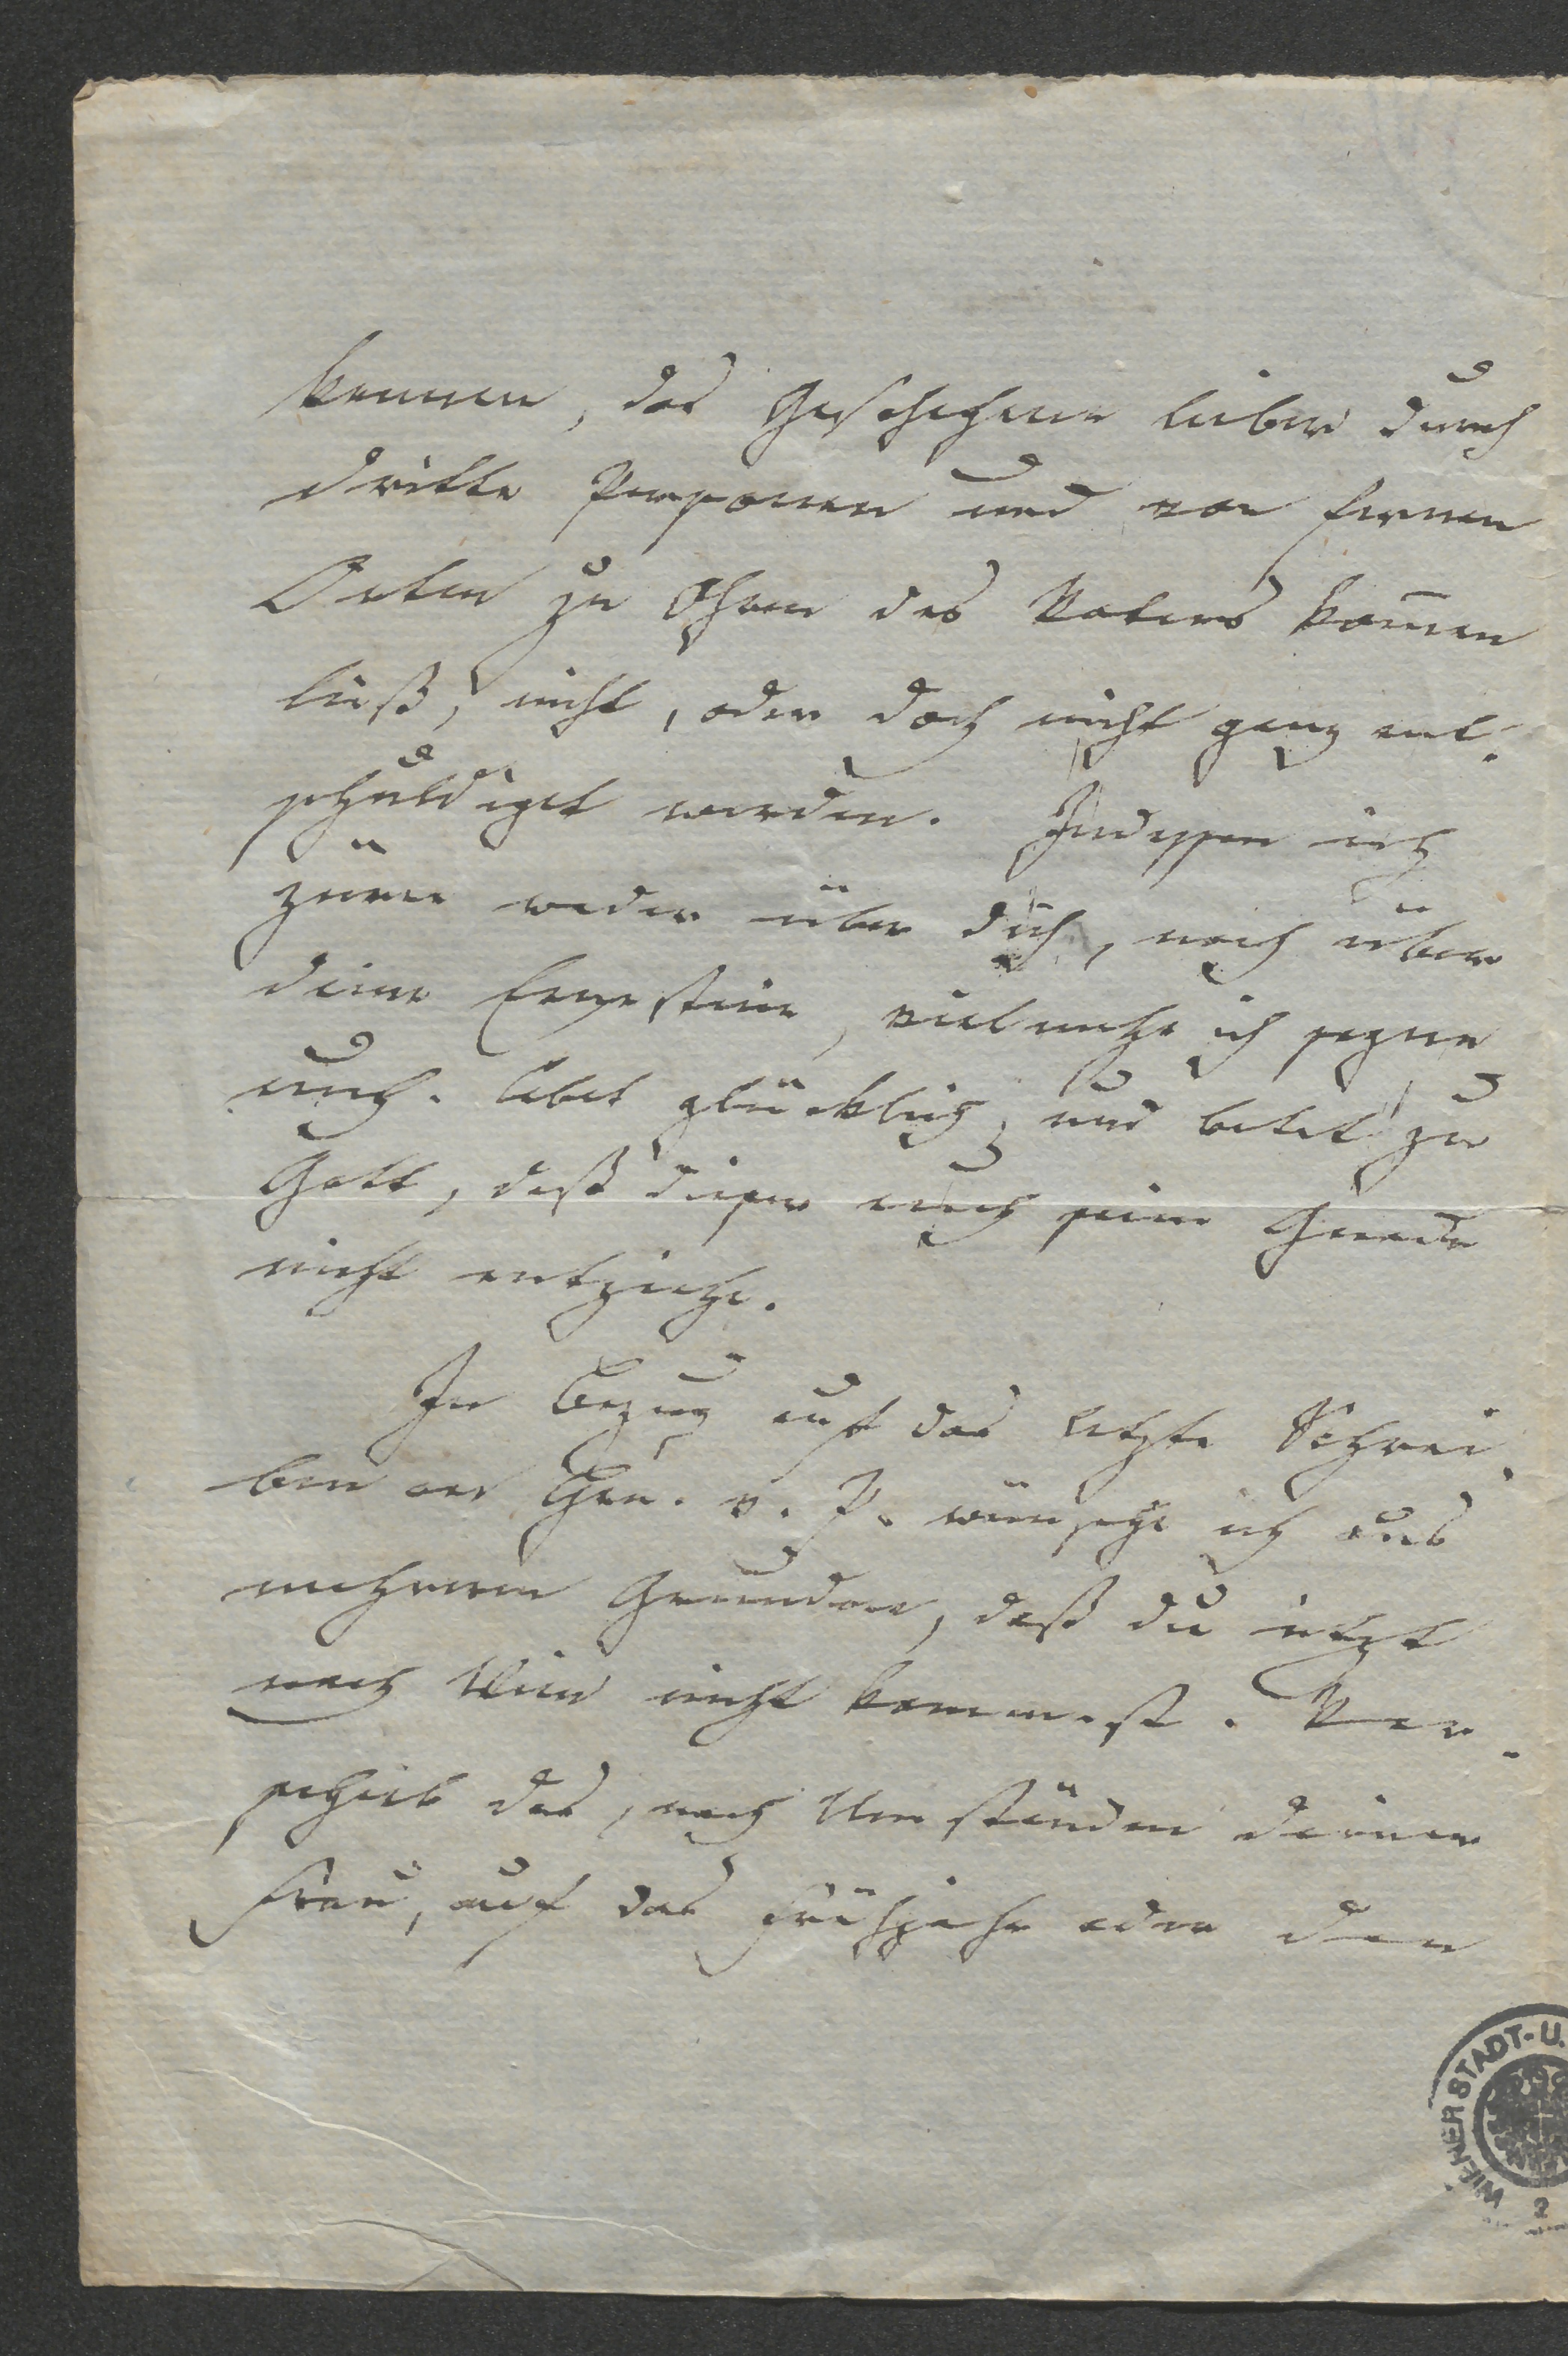 kennen, das Geschehene lieber durch
dritte Personen und von fernen
Orten zu Ohren des Vaters kom̄en
ließ, nicht, oder doch nicht ganz ent-
schuldiget werden. Indessen ich
zürne weder über dich, noch über
deine Ernestine, vielmehr ich segne
euch. Lebet glücklich, und betet zu
Gott, daß dieser euch seine Gnade
nicht entziehe.
In Bezug auf das letzte Schrei-
ben an Hrn. v. P. wünsche ich aus
mehreren Gründen, daß du jetzt
nach Wien nicht kommest. Ver-
schieb das, nach Umständen deiner
Frau, auf das Frühjahr oder den
WIENER STADT-U.
2